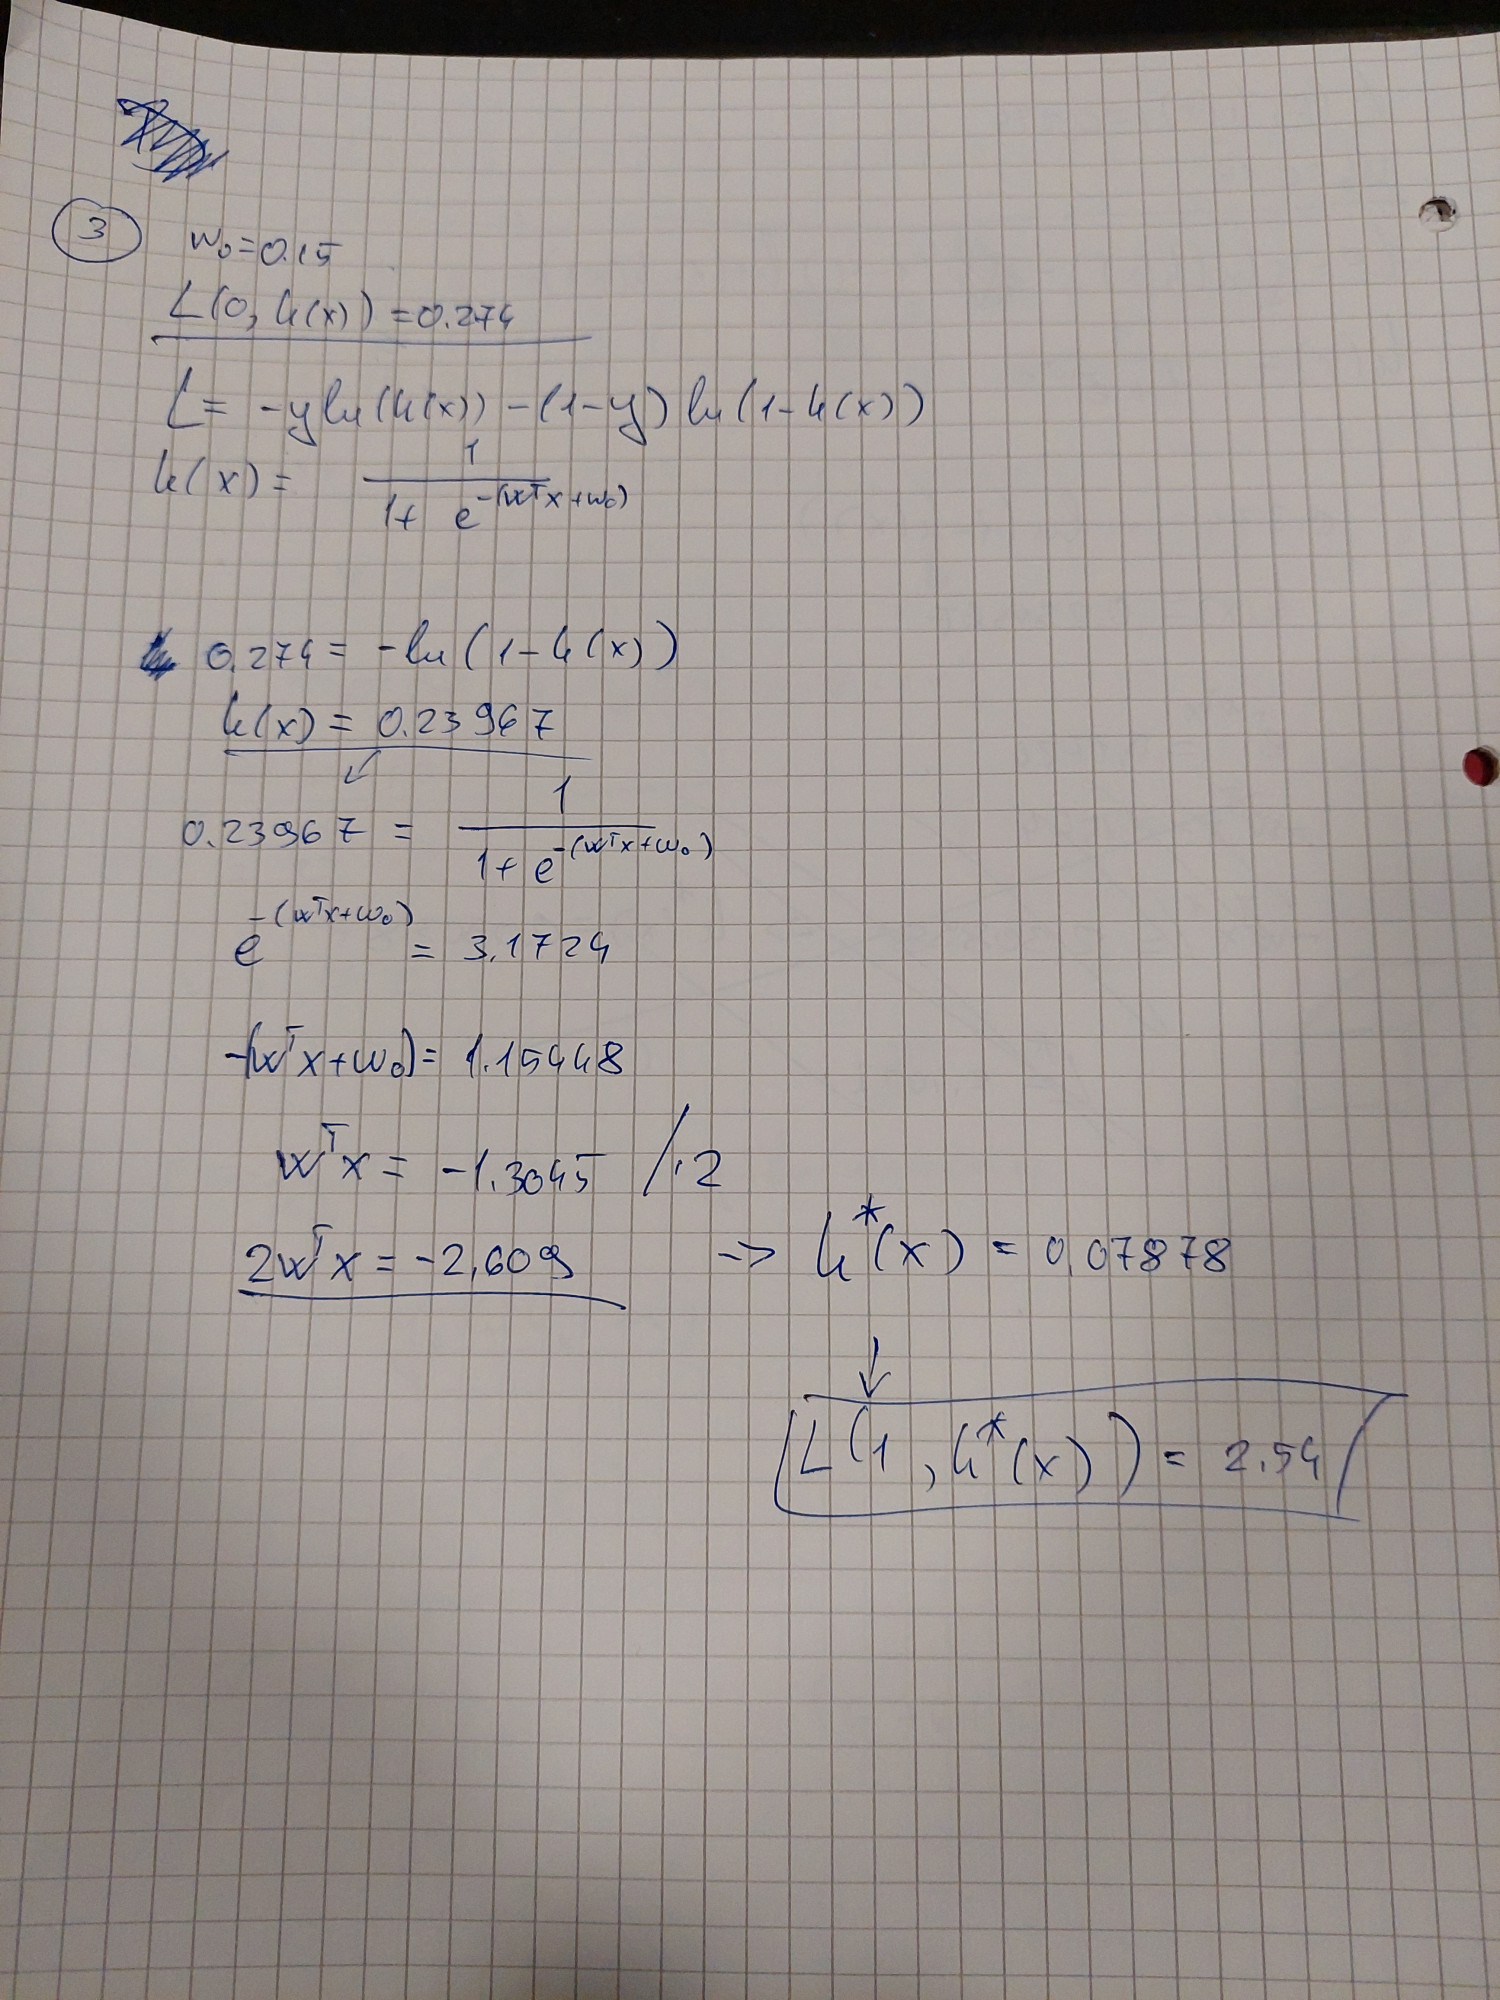 3 w₀=0.15
L(0, h(x)) = 0.274
L = -y ln(h(x)) - (1-y) ln(1-h(x))
h(x) = 1 / (1 + e^-(wᵀx+w₀))
0.274 = -ln(1-h(x))
h(x) = 0.23967
↙
0.23967 = 1 / (1 + e^-(wᵀx+w₀))
e^-(wᵀx+w₀) = 3.1724
-(wᵀx+w₀) = 1.15448
wᵀx = -1.3045 /·2
2wᵀx = -2.609 -> h*(x) = 0.07878
↓
L(1, h*(x)) = 2.54